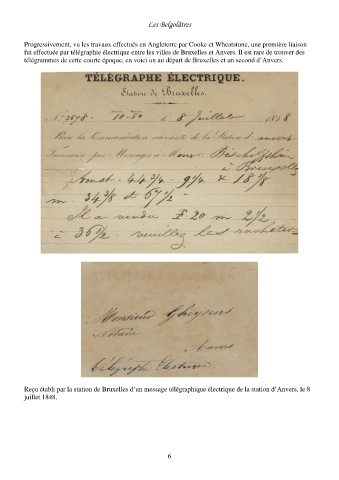 Les Belgolâtres
Progressivement, vu les travaux effectués en Angleterre par Cooke et Wheatstone, une première liaison
fut effectuée par télégraphie électrique entre les villes de Bruxelles et Anvers. Il est rare de trouver des
télégrammes de cette courte époque, en voici un au départ de Bruxelles et un second d’Anvers.
TÉLÉGRAPHE ÉLECTRIQUE.
Station de Bruxelles.
N° 2678 - 10-50 à 8 Juillet 1848
Reçu la Communication suivante de la Station d' anvers
Transmise par Messager à Mons
à Bruxelles
Amst - 44 3/4 - 9 1/4 & 18 1/8
m - 34 3/8 et 67 1/2 -
Il a vendu £ 20 m 2 1/2
à 36 1/2 - veuillez les racheter
Monsieur Gheysens
Notaire
Anvers
Télégraphe Electrique
Reçu établi par la station de Bruxelles d’un message télégraphique électrique de la station d’Anvers, le 8
juillet 1848.
6